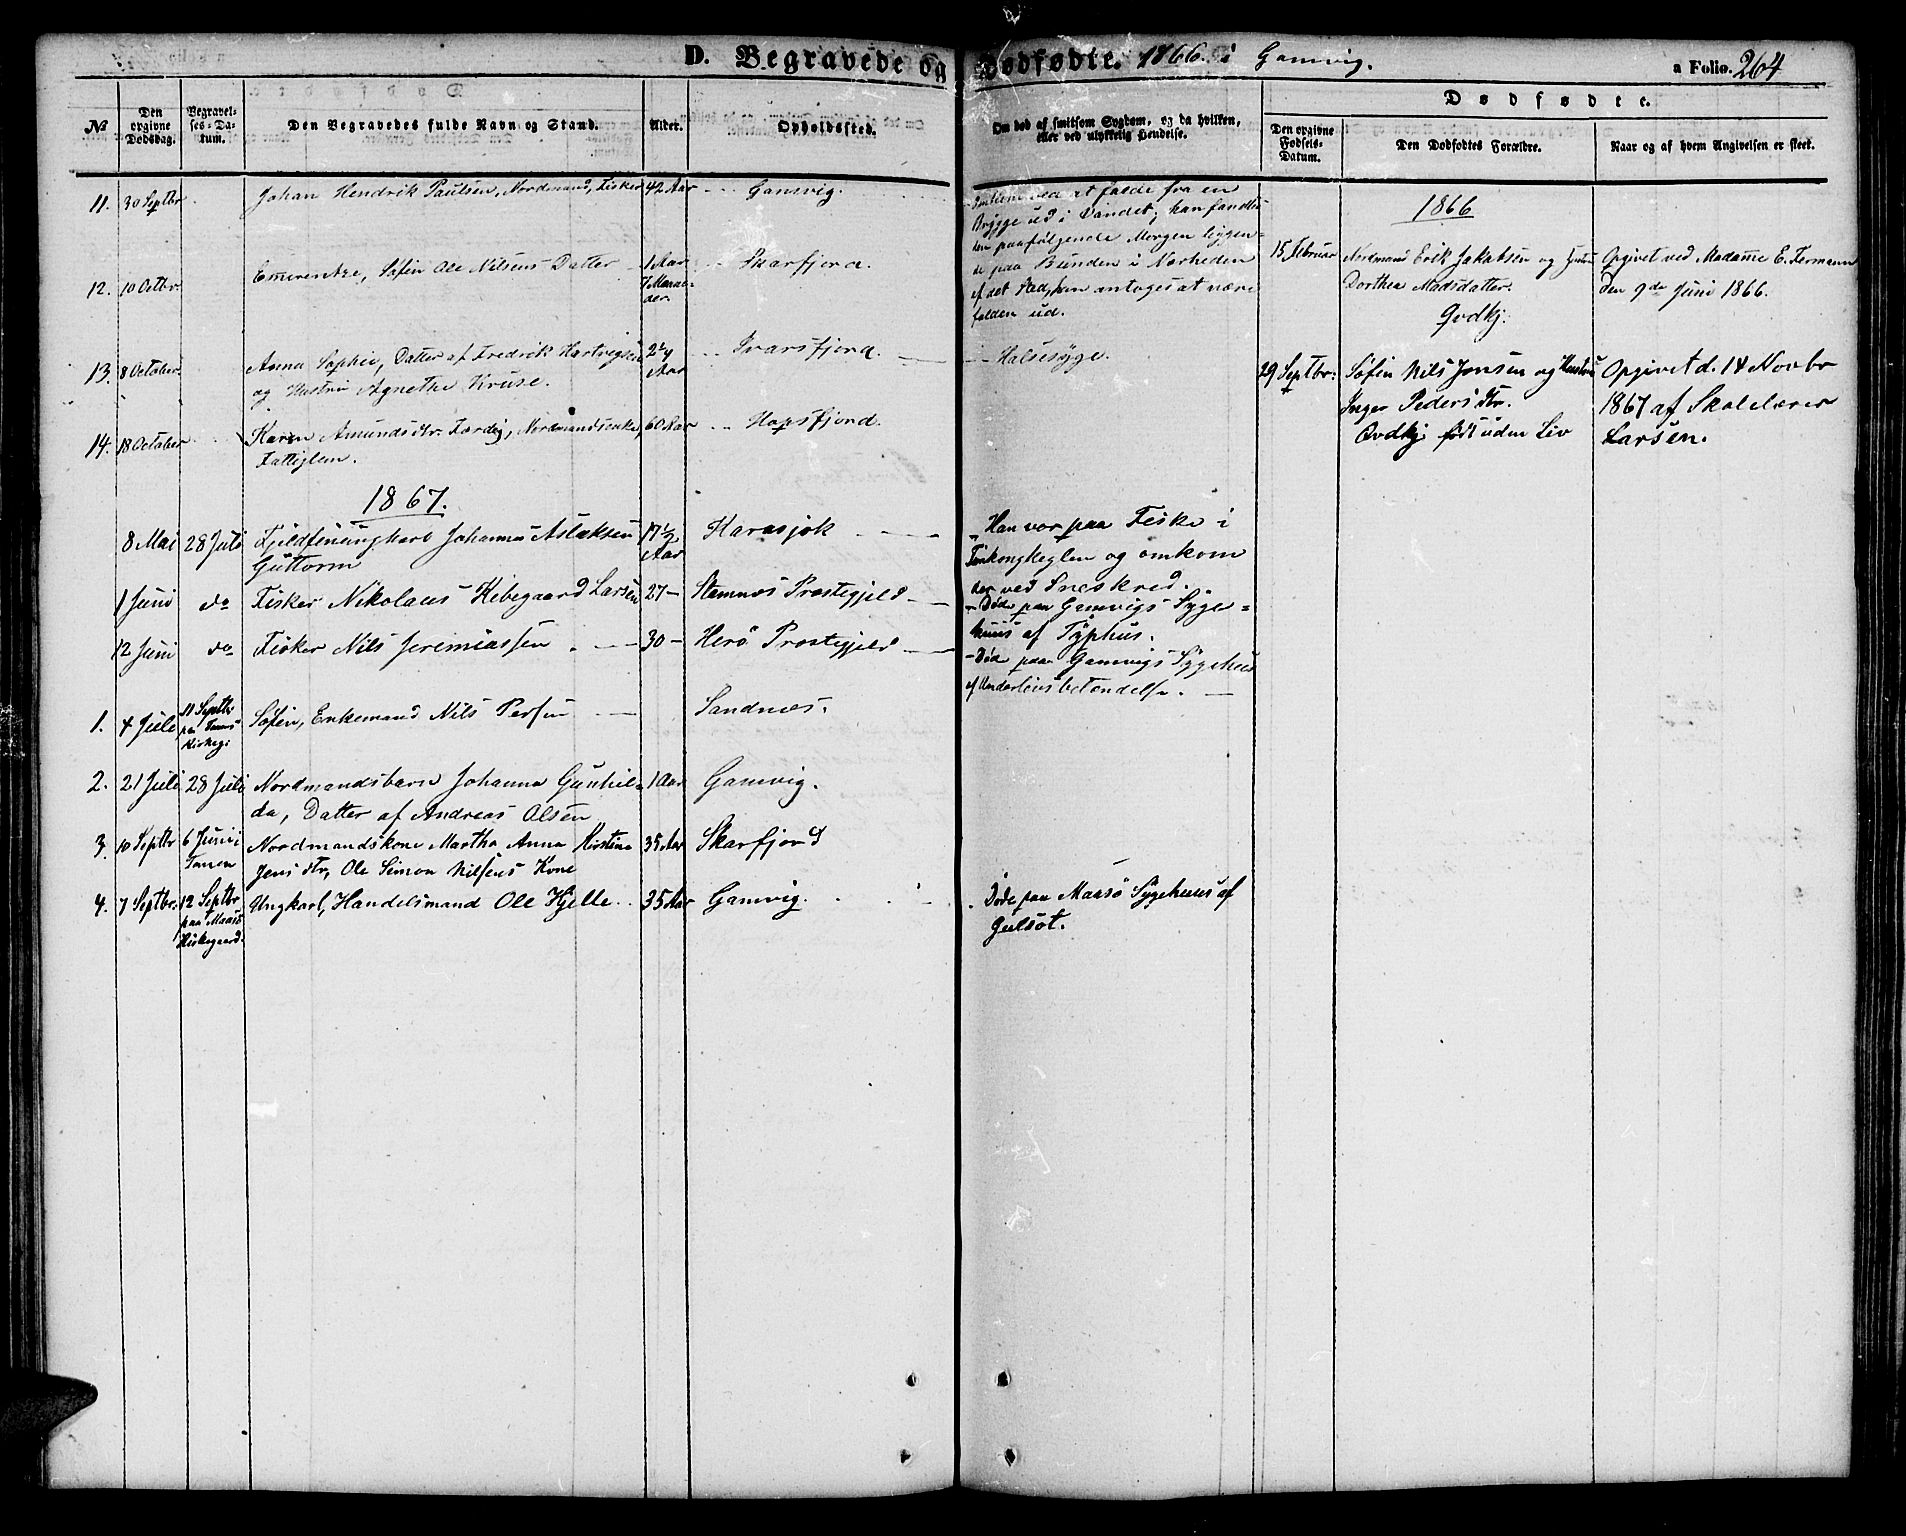 D. Begravede og Dødfødte. 1866 i Gamvig.
a Folio. 264
No
Den opgivne Dødsdag.
Begravelses-Datum.
Den Begravedes fulde Navn og Stand.
Alder.
Opholdssted.
Om død af smitsom Sygdom, og da hvilken, eller ved ulykkelig Hendelse.
Dødfødte.
Den opgivne Fødsels-Datum.
Den Dødfødtes Forældre.
Naar og af hvem Angivelsen er skeet.
11. 30 Septbr Johan Hendrik Paulsen, Nordmand, Fisker 42 Aar Gamvig.
Omkom ved at falde fra en
Brygge ud i Vandet; han fandtes
den paafølgende Morgen liggen-
de paa Bunden i Nærheden
af det Sted, han antoges at være
falden ud.
12. 10 Octbr. Emerentze, Søfin Ole Nilsens Datter 1 Aar
7 Maane-
der.
Skarfjord.
13. 8 October Anna Sophie, Datter af Fredrik Hartvigsen
og Hustru Agnethe Kruse.
2¼
Aar
Ivarsfjord.
Halssyge.
14. 18 October Karen Amundsdtr. Færdig, Nordmandsenke,
Fattiglem.
60 Aar Hopsfjord.
1867.
8 Mai 28 Juli Fjeldfinungkarl Johannes Aslaksen
Guttorm
17½
Aar
Karasjok
Han var paa Fiske i
Finkongkeglen og omkom
der ved Sneskred.
1 Juni do Fisker Nikolaus Kibegaard Larsen 27 Stamnæs Præstegjeld
Døde paa Gamvigs Syge-
huus af Typhus.
12 Juni do Fisker Nils Jeremiassen 30 Herö Præstegjeld
Døde paa Gamvigs Sygehuus
af Underlivsbetændelse.
1. 4 Juli 11 Septbr
paa Tanens
Kirkeg:
Søfin, Enkemand Nils Persen Sandnæs.
2. 21 Juli 28 Juli Nordmandsbarn Johanna Gunhil-
da, Datter af Andreas Olsen
1 Aar Gamvig.
3. 10 Septbr 6 Juni i
Tanen
Nordmandskone Martha Anna Kirstina
Jensdtr, Ole Simon Nilsens Kone
35 Aar Skarfjord
4. 7 Septbr. 12 Septbr
paa Maasö
Kirkegaard.
Ungkarl, Handelsmand Ole Kjelle 35 Aar Gamvig.
Døde paa Maasö Sygehuus af
Gulsot.
1866
15 Februar Nordmand Erik Jakobsen og Hustru
Dorthea Madsdatter.
Qvdkj.
Opgivet ved Madame E. Fermann
den 9de Juni 1866.
29 Septbr: Søfin Nils Jonsen og Hustru
Inger Pedersdtr.
Qvdkj. født uden Liv
Opgivet d. 14 Novbr
1867 af Skolelærer
Larsen.